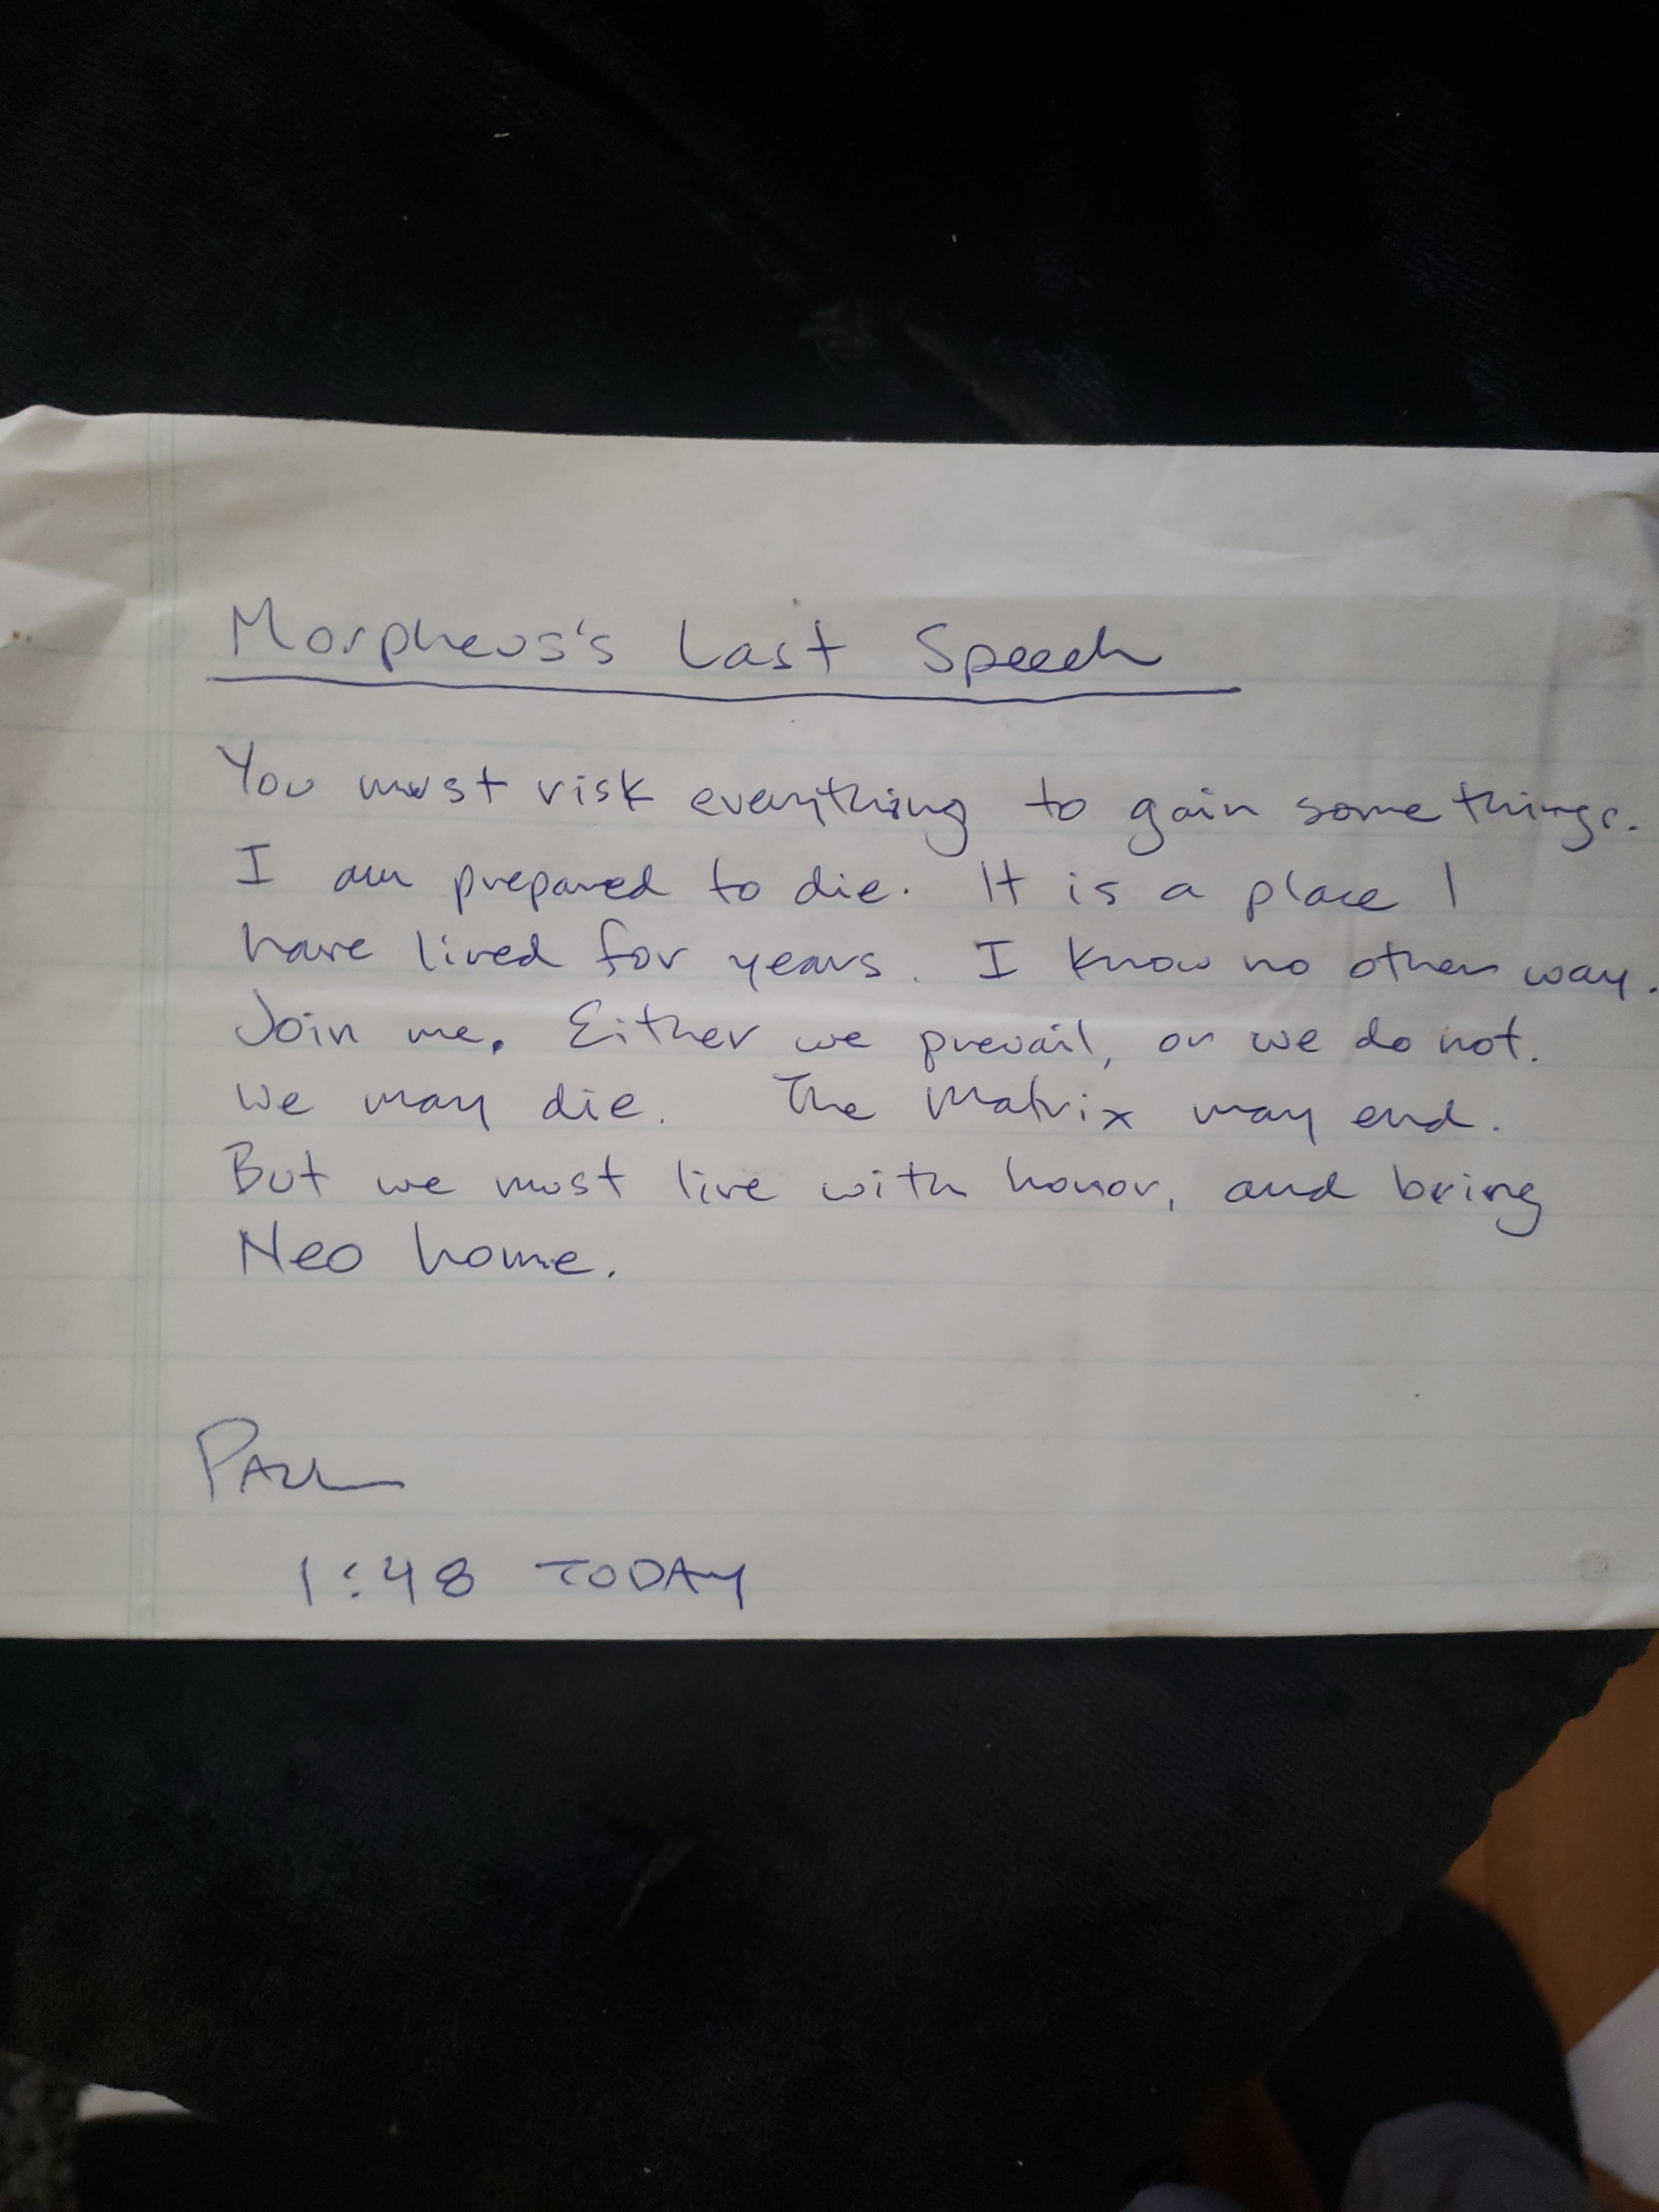 Morpheus's Last Speech
You must risk everything to gain some things.
I am prepared to die. It is a place I
have lived for years. I know no other way.
Join me. Either we prevail, or we do not.
We may die. The Matrix may end.
But we must live with honor, and bring
Neo home.
PAUL
1:48 TODAY